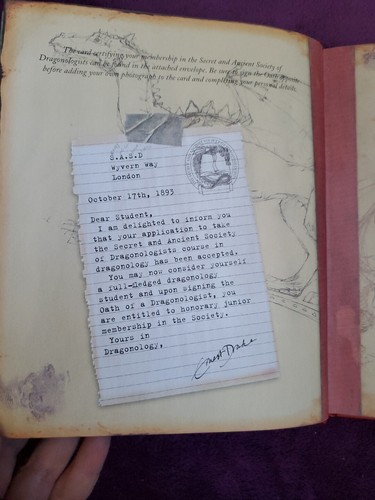 The card certifying your membership in the Secret and Ancient Society of
Dragonologists can be found in the attached envelope. Be sure to sign the Oath
before adding your own photograph to the card and completing your personal details.
S.A.S.D
Wyvern Way
London
October 17th, 1893
Dear Student,
I am delighted to inform you
that your application to take
the Secret and Ancient Society
of Dragonologists course in
dragonology has been accepted.
You may now consider yourself
a full-fledged dragonology
student and upon signing the
Oath of a Dragonologist, you
are entitled to honorary junior
membership in the Society.
Yours in
Dragonology,
Ernest Drake